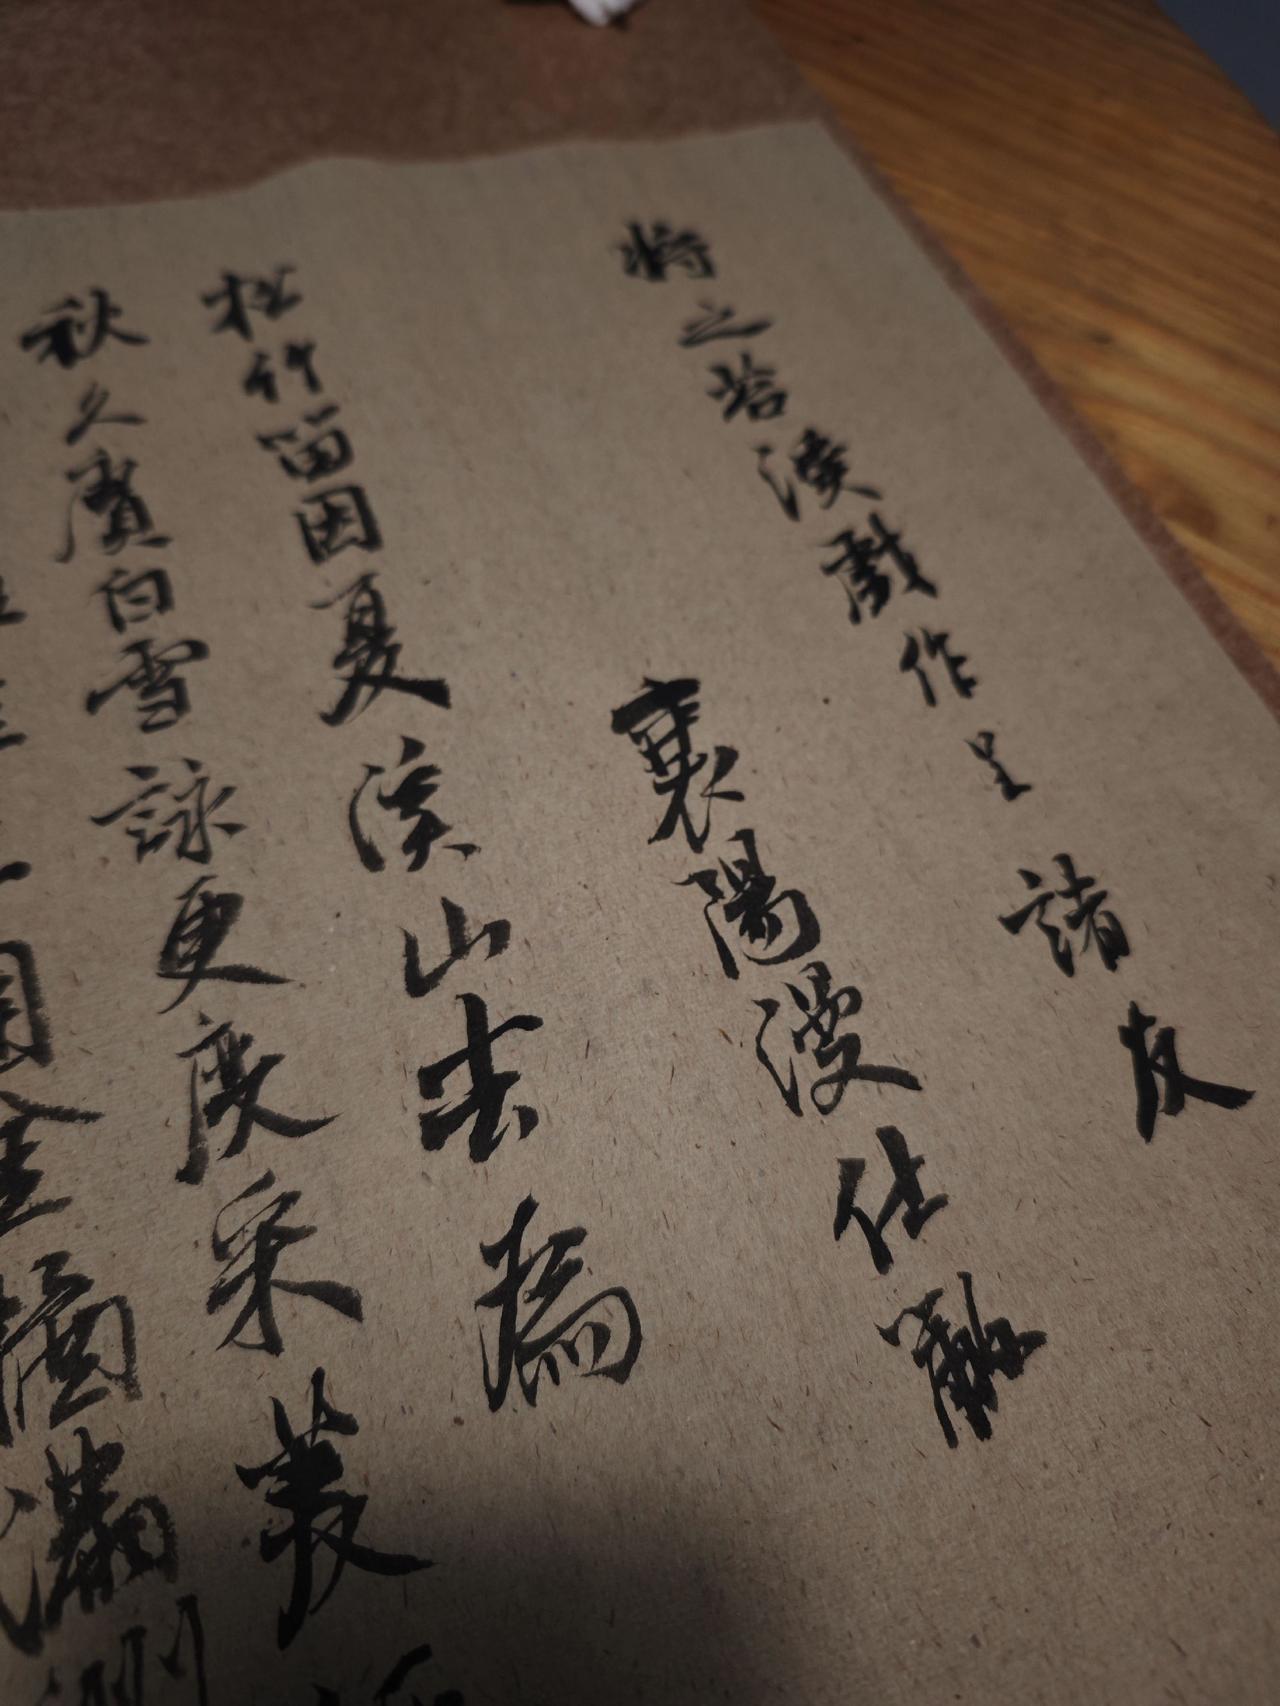 將之苕溪戲作呈諸友
襄陽漫仕黻
松竹留因夏溪山去為
秋久賡白雪詠更度采菱
金橘滿洲